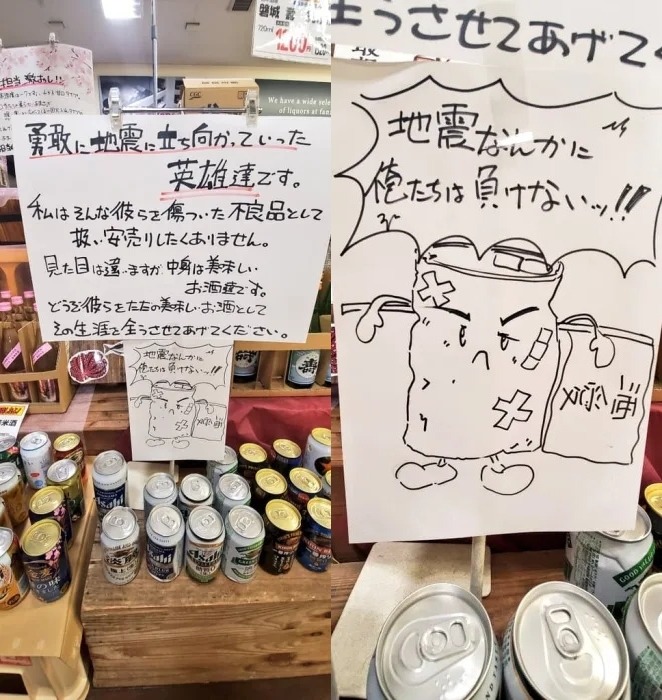 磐城 壽
720ml
1209円
担当 激おし!!
We have a wide sele
of liquors at fan
勇敢に地震に立ち向かっていった
英雄達です。
私はそんな彼らを傷ついた不良品として
扱い安売りしたくありません。
見た目は違いますが中身は美味しい
お酒達です。
どうぞ彼らをただの美味しいお酒として
その生涯を全うさせてあげてください。
地震なんかに
俺たちは負けないッ!!
壽
Asahi
Asahi
の味
全うさせてあげてく
地震なんかに
俺たちは負けないッ!!
GOOD